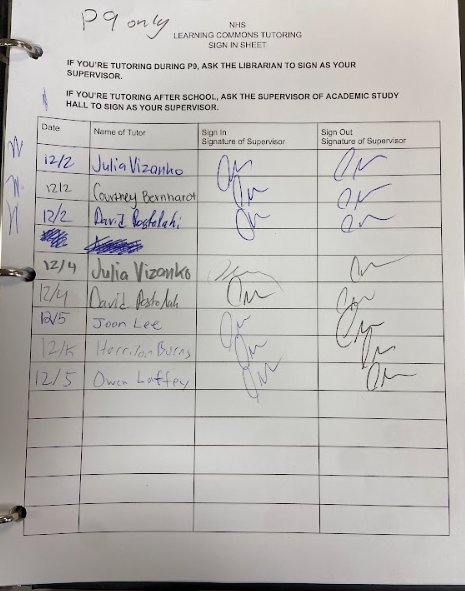 P9 only
NHS
LEARNING COMMONS TUTORING
SIGN IN SHEET
IF YOU'RE TUTORING DURING P9, ASK THE LIBRARIAN TO SIGN AS YOUR
SUPERVISOR.
IF YOU'RE TUTORING AFTER SCHOOL, ASK THE SUPERVISOR OF ACADEMIC STUDY
HALL TO SIGN AS YOUR SUPERVISOR.
Date Name of Tutor Sign In Sign Out
Signature of Supervisor Signature of Supervisor
12/2 Julia Vizanko
12/2 Courtney Bernhardt
12/2 David Postolaki
12/4 Julia Vizanko
12/4 David
12/5 Joon Lee
12/5 Harrison Burns
12/5 Owen Laffey